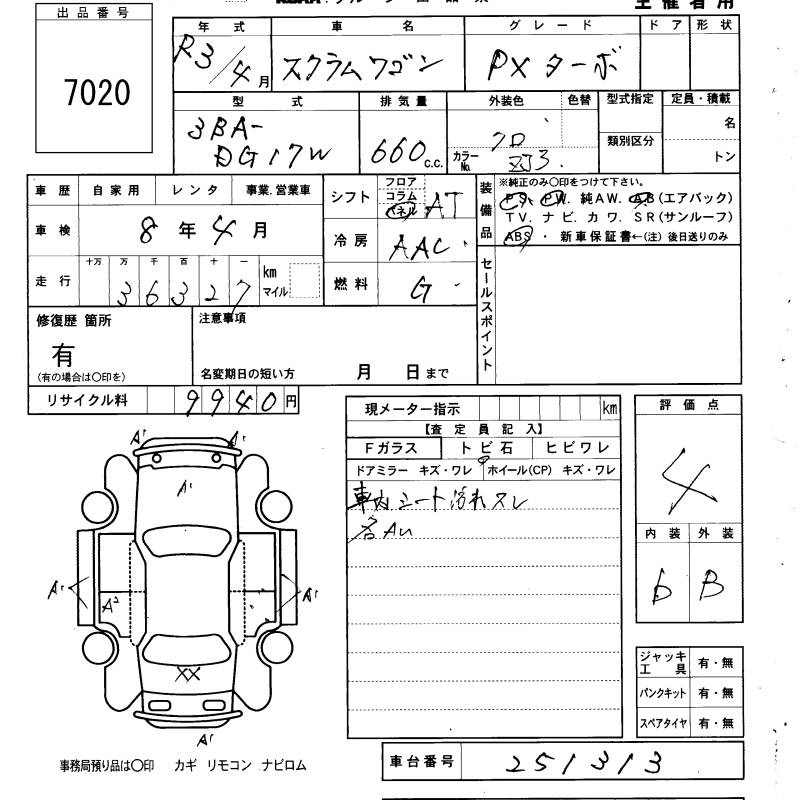 主催者用
出品番号
7020
年式 車名 グレード ドア 形状
R3/4月 スクラムワゴン PXターボ
型式 排気量 外装色 色替 型式指定 定員・積載
3BA- 名
DG17W 660c.c. クロ 類別区分
カラーNo. ZJ3. トン
車歴 自家用 レンタ 事業.営業車
シフト フロア コラム パネル AT
装備品 ※純正のみ〇印をつけて下さい。
PS. PW. 純AW. AB(エアバック)
TV. ナビ. カワ. SR(サンルーフ)
ABS ・ 新車保証書←(注) 後日送りのみ
車検 8年4月
冷房 AAC
走行 十万 万 千 百 十 一 km マイル
36327
燃料 G
セールスポイント
修復歴 箇所
有
(有の場合は〇印を)
注意事項
名変期日の短い方 月 日まで
リサイクル料 9940円
現メーター指示 km
【査定員記入】
Fガラス トビ石 ヒビワレ
ドアミラー キズ・ワレ ホイール(CP) キズ・ワレ
車内シート汚れスレ
各AU
評価点
4
内装 外装
b B
A1 A1
A1
A1 A2 A1
XX
A1
ジャッキ工具 有・無
パンクキット 有・無
スペアタイヤ 有・無
事務局預り品は〇印 カギ リモコン ナビロム
車台番号 251313